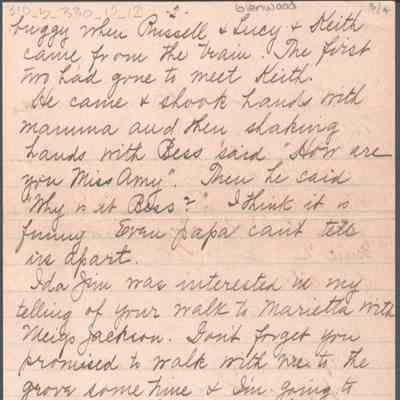 310_5_330_12_12 -2 Glenwood 3/4
buggy when Russell & Lucy & Keith
came from the train. The first
two had gone to meet Keith.
He came & shook hands with
mamma and then shaking
hands with Bess said "How are
you Miss Amy". Then he said
"Why is it Bess?". I think it is
funny Even papa can't tell
us apart.
Ida Jim was interested in my
telling of your walk to Marietta with
Meigs Jackson. Don't forget you
promised to walk with me to the
grove some time & I'm going to